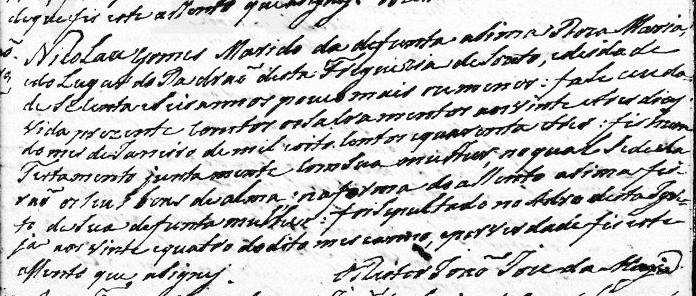 de que fis este assento que asigney.
Nicolau Gomes Marido da defunta asima Roza Maria
e do Lugar do Padraõ desta Freguezia de Souto, e desidade
de setenta e seis annos pouco mais ou menos: faleceu da
vida prezente com tos os salvamentos aos vinte e tres dias
do mes de Janeiro de mil e oito centos e quarenta e tres: fis hum
Testamento juntamente com sua mulher, no qual se decla
raõ os seus bens de alma: na forma do assento asima fei
to, de sua defunta mulher: foi sepultado no Adro desta Igre
ja aos vinte e quatro do dito mes e anno, e por verdade fis este
assento que asigney.
O Reitor Joaõ Joze da